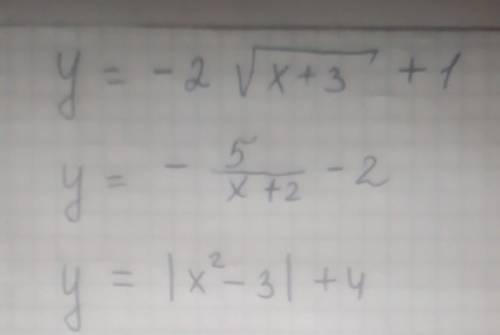 y = -2 √(x+3) + 1
y = - 5/(x+2) - 2
y = |x² - 3| + 4